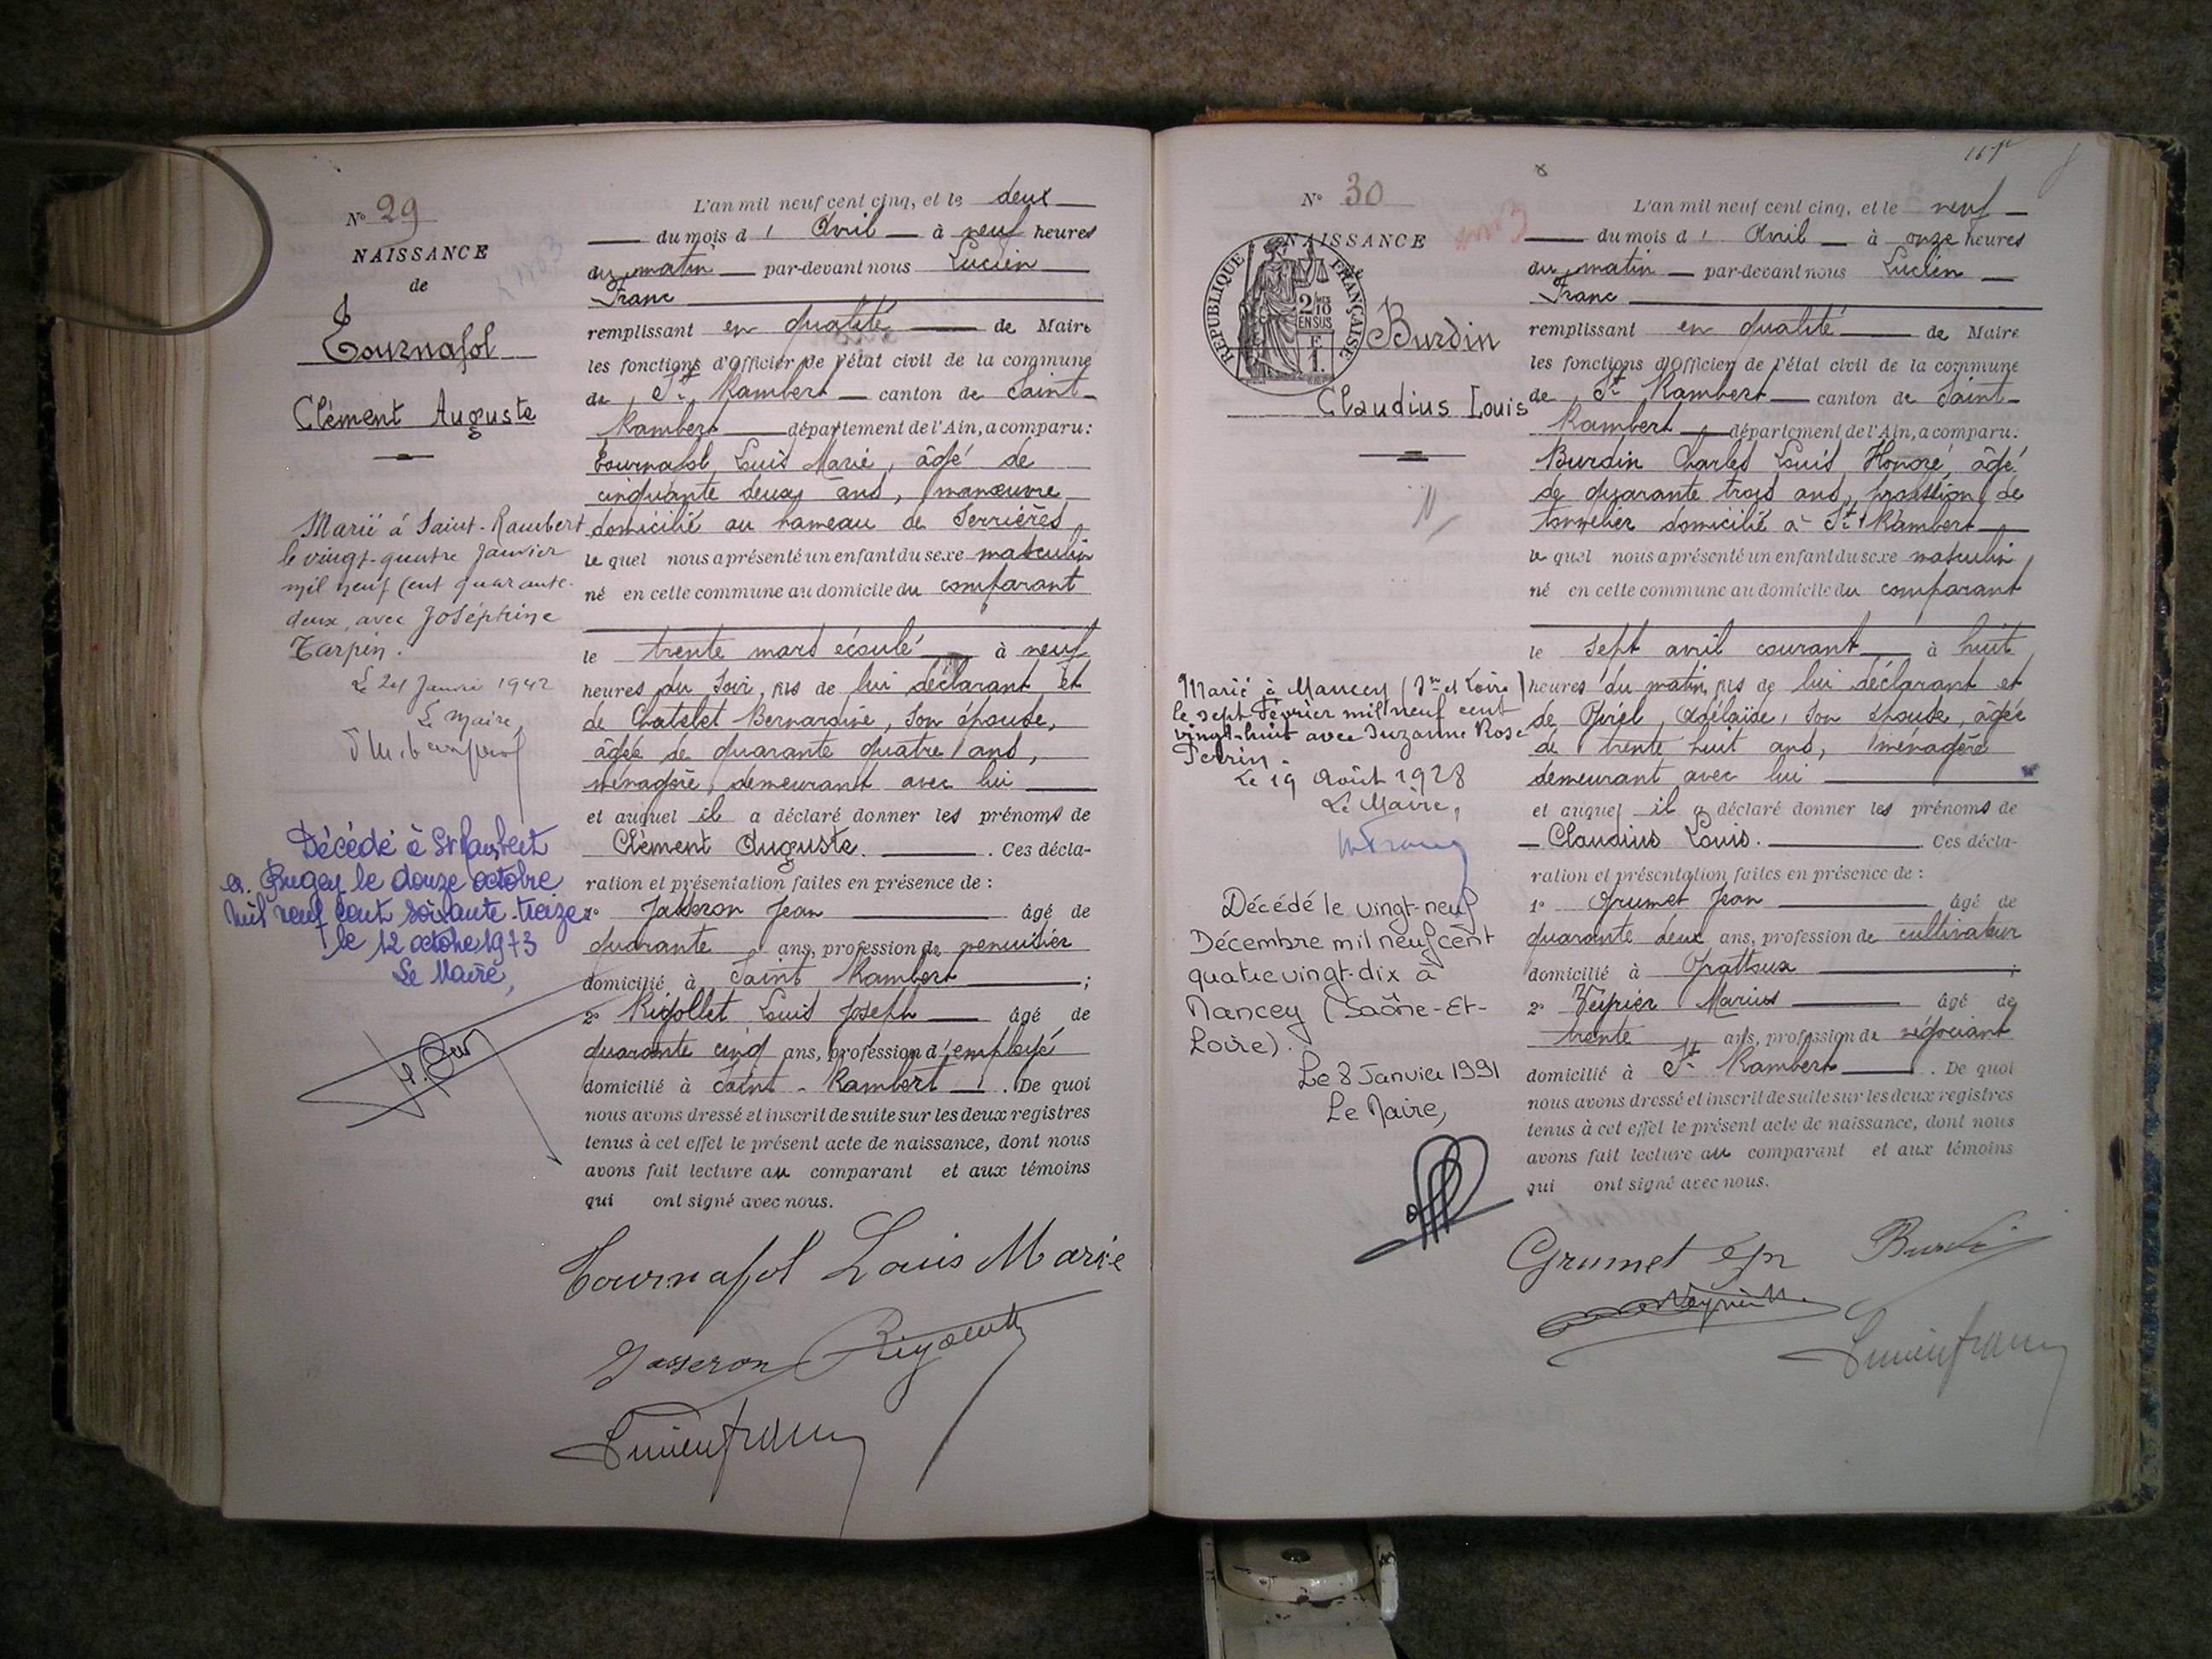 N° 29
NAISSANCE
de
Tournafol
Clément Auguste
Marié à Saint-Rambert
le vingt-quatre Janvier
mil neuf cent quarante-
deux, avec Joséphine
Tarpin.
Le 24 Janvier 1942
Le Maire,
Décédé à St Rambert
en Bugey le douze octobre
mil neuf cent soixante-treize
le 12 octobre 1973
Le Maire,
L'an mil neuf cent cinq, et le deux
du mois d' Avril à neuf heures
du matin par-devant nous Lucien
Franc
remplissant en qualité de Maire
les fonctions d'Officier de l'état civil de la commune
de St Rambert canton de Saint-
Rambert département de l'Ain, a comparu:
Tournafol, Louis Marie, âgé de
cinquante deux ans, manœuvre
domicilié au hameau de Serrières
le quel nous a présenté un enfant du sexe masculin
né en cette commune au domicile du comparant
le trente mars écoulé à neuf
heures du soir, fils de lui déclarant et
de Chatelet Bernardine, son épouse,
âgée de quarante quatre ans,
ménagère, demeurant avec lui
et auquel il a déclaré donner les prénoms de
Clément Auguste. . Ces décla-
ration et présentation faites en présence de :
1° Jasseron Jean âgé de
quarante ans, profession de menuisier
domicilié à Saint Rambert ;
2° Rigollet Louis Joseph âgé de
quarante cinq ans, profession d'employé
domicilié à Saint-Rambert . De quoi
nous avons dressé et inscrit de suite sur les deux registres
tenus à cet effet le présent acte de naissance, dont nous
avons fait lecture au comparant et aux témoins
qui ont signé avec nous.
Tournafol Louis Marie
Jasseron
Lucien Franc
N° 30
NAISSANCE
de
RÉPUBLIQUE FRANÇAISE
2/10
EN SUS
F
1.
Burdin
Claudius Louis
Marié à Mancey (Sne et Loire)
le sept Février mil neuf cent
vingt-huit avec Suzanne Rose
Perrin.
Le 19 Août 1928
Le Maire,
Décédé le vingt-neuf
Décembre mil neuf cent
quatre vingt-dix à
Mancey (Saône-Et-
Loire).
Le 8 Janvier 1991
Le Maire,
L'an mil neuf cent cinq, et le neuf
du mois d' Avril à onze heures
du matin par-devant nous Lucien
Franc
remplissant en qualité de Maire
les fonctions d'Officier de l'état civil de la commune
de St Rambert canton de Saint-
Rambert département de l'Ain, a comparu:
Burdin Charles Louis Honoré, âgé
de quarante trois ans, profession de
tonnelier domicilié à St Rambert
le quel nous a présenté un enfant du sexe masculin
né en cette commune au domicile du comparant
le sept avril courant à huit
heures du matin, fils de lui déclarant et
de Adélaïde, son épouse, âgée
de trente huit ans, ménagère
demeurant avec lui
et auquel il a déclaré donner les prénoms de
Claudius Louis. Ces décla-
ration et présentation faites en présence de :
1° Grumet Jean âgé de
quarante deux ans, profession de cultivateur
domicilié à Grattoux ;
2° Veyrier Marius âgé de
trente ans, profession de négociant
domicilié à St Rambert . De quoi
nous avons dressé et inscrit de suite sur les deux registres
tenus à cet effet le présent acte de naissance, dont nous
avons fait lecture au comparant et aux témoins
qui ont signé avec nous.
Grumet Burdin
Lucien Franc